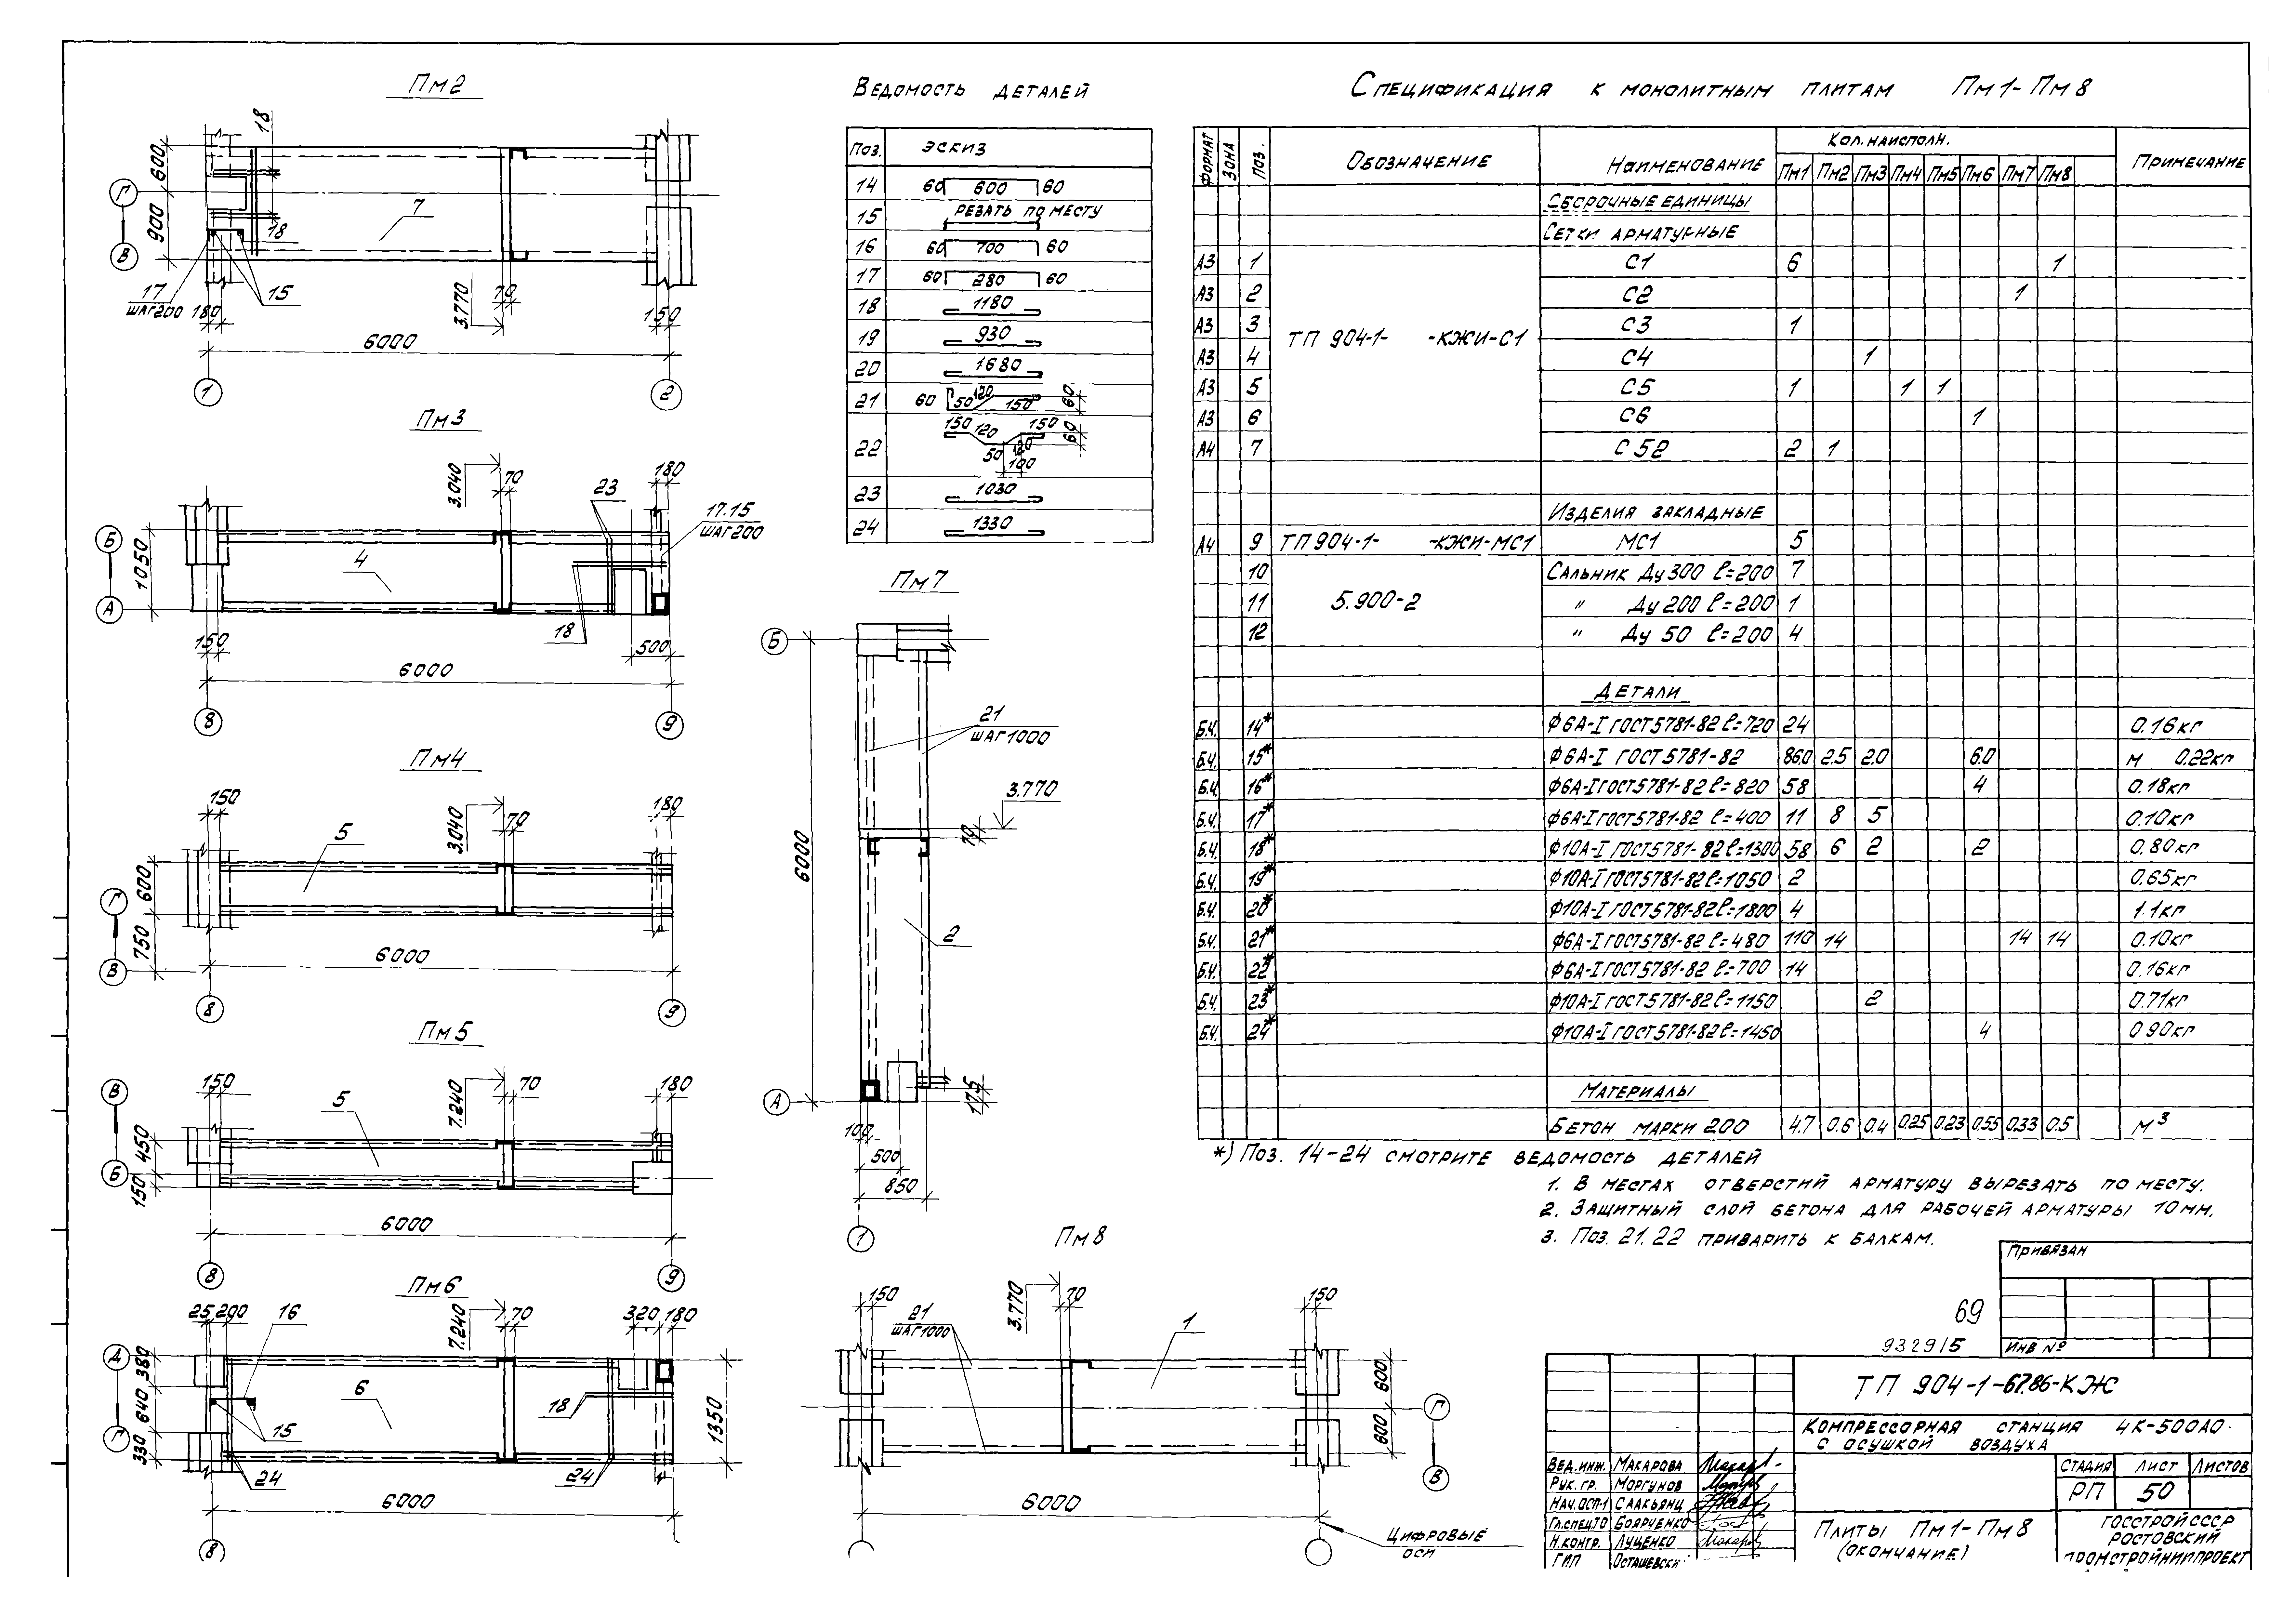 Пм2
18
600
Г
900
В
7
18
17
ШАГ200
15
180
3.770
70
150
6000
1
2
Пм3
3.040
70
180
23
17.15
ШАГ200
Б
1050
А
4
18
150
500
6000
8
9
Пм4
150
5
3.040
70
180
600
Г
750
В
6000
8
9
Пм5
150
5
7.240
70
180
В
450
Б
150
6000
8
9
Пм6
25 200
16
7.240
70
320
180
Д
380
640
Г
330
6
15
18
24
24
1350
6000
8
Ведомость деталей
Поз. эскиз
14 60 600 60
15 резать по месту
16 60 700 60
17 60 280 60
18 1180
19 930
20 1680
21 60 50 120 150 60
22 150 120 150 60 50 120 100
23 1030
24 1330
Пм7
Б
21
ШАГ1000
3.770
70
6000
2
А
175
100
500
850
1
Пм8
150
3.770
70
150
21
ШАГ1000
1
600
Г
600
В
6000
Цифровые
оси
Спецификация к монолитным плитам Пм1-Пм8
Формат Зона Поз. Обозначение Наименование Кол. на исполн. Примечание
Пм1 Пм2 Пм3 Пм4 Пм5 Пм6 Пм7 Пм8
Сборочные единицы
Сетки арматурные
А3 1 С1 6 1
А3 2 С2 1
А3 3 С3 1
ТП 904-1- -КЖИ-С1
А3 4 С4 1
А3 5 С5 1 1 1
А3 6 С6 1
А4 7 С52 2 1
Изделия закладные
А4 9 ТП904-1- -КЖИ-МС1 МС1 5
10 Сальник Ду300 ℓ=200 7
11 5.900-2 " Ду200 ℓ=200 1
12 " Ду 50 ℓ=200 4
Детали
Б.Ч. 14* Ф6А-I ГОСТ5781-82 ℓ=720 24 0.16кг
Б.Ч. 15* Ф6А-I ГОСТ5781-82 86.0 2.5 2.0 6.0 м 0.22кг
Б.Ч. 16* Ф6А-I ГОСТ5781-82 ℓ=820 58 4 0.18кг
Б.Ч. 17* Ф6А-I ГОСТ5781-82 ℓ=400 11 8 5 0.10кг
Б.Ч. 18* Ф10А-I ГОСТ5781-82 ℓ=1300 58 6 2 2 0.80кг
Б.Ч. 19* Ф10А-I ГОСТ5781-82 ℓ=1050 2 0.65кг
Б.Ч. 20* Ф10А-I ГОСТ5781-82 ℓ=1800 4 1.1кг
Б.Ч. 21* Ф6А-I ГОСТ5781-82 ℓ=480 110 14 14 14 0.10кг
Б.Ч. 22* Ф6А-I ГОСТ5781-82 ℓ=700 14 0.16кг
Б.Ч. 23* Ф10А-I ГОСТ5781-82 ℓ=1150 2 0.71кг
Б.Ч. 24* Ф10А-I ГОСТ5781-82 ℓ=1450 4 0.90кг
Материалы
Бетон марки 200 4.7 0.6 0.4 0.25 0.23 0.55 0.33 0.5 м³
*) Поз. 14-24 смотрите ведомость деталей
1. В местах отверстий арматуру вырезать по месту.
2. Защитный слой бетона для рабочей арматуры 10мм.
3. Поз. 21.22 приварить к балкам.
Привязан
69
9329/5
Инв №
ТП 904-1-67.86-КЖ
Компрессорная станция 4К-500АО
с осушкой воздуха
Вед.инж. Макарова
Рук.гр. Моргунов
Нач.ОСП-1 Саакьянц
Гл.спецТО Боярченко
Н.контр. Луценко
ГИП Осташевски
Стадия Лист Листов
РП 50
Плиты Пм1-Пм8
(окончание)
Госстрой СССР
Ростовский
Промстройниипроект